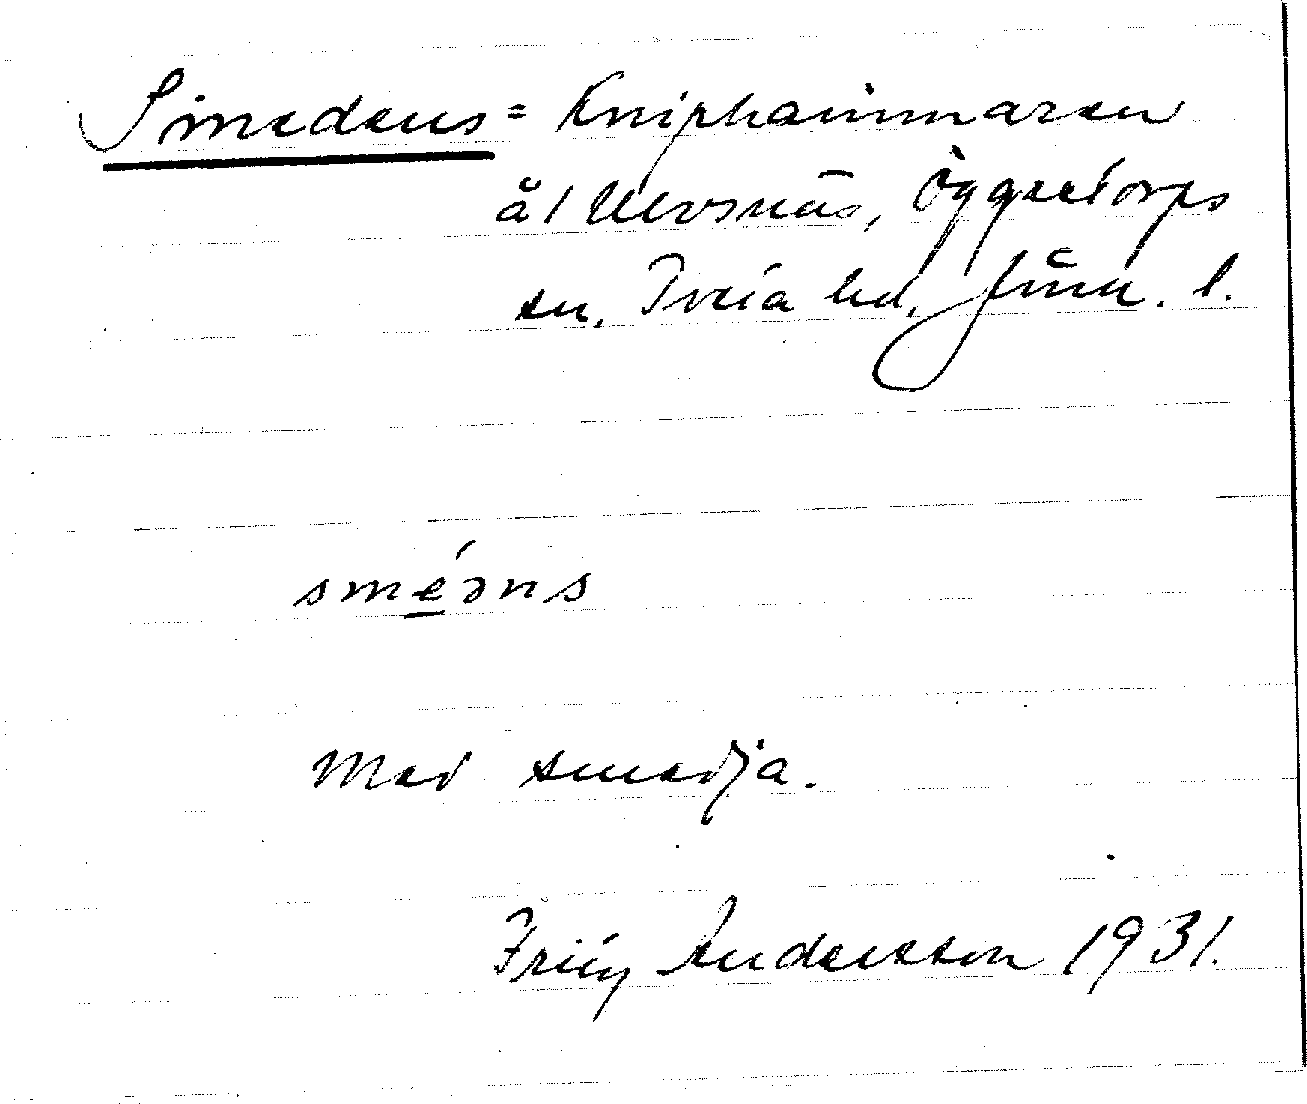 Smedens = Kniphammaren
å / Ulvsnäs, Öggestorps
sn. Tveta hd, Jönk. l.
sméəns
Med smedja.
Andersson 1931.